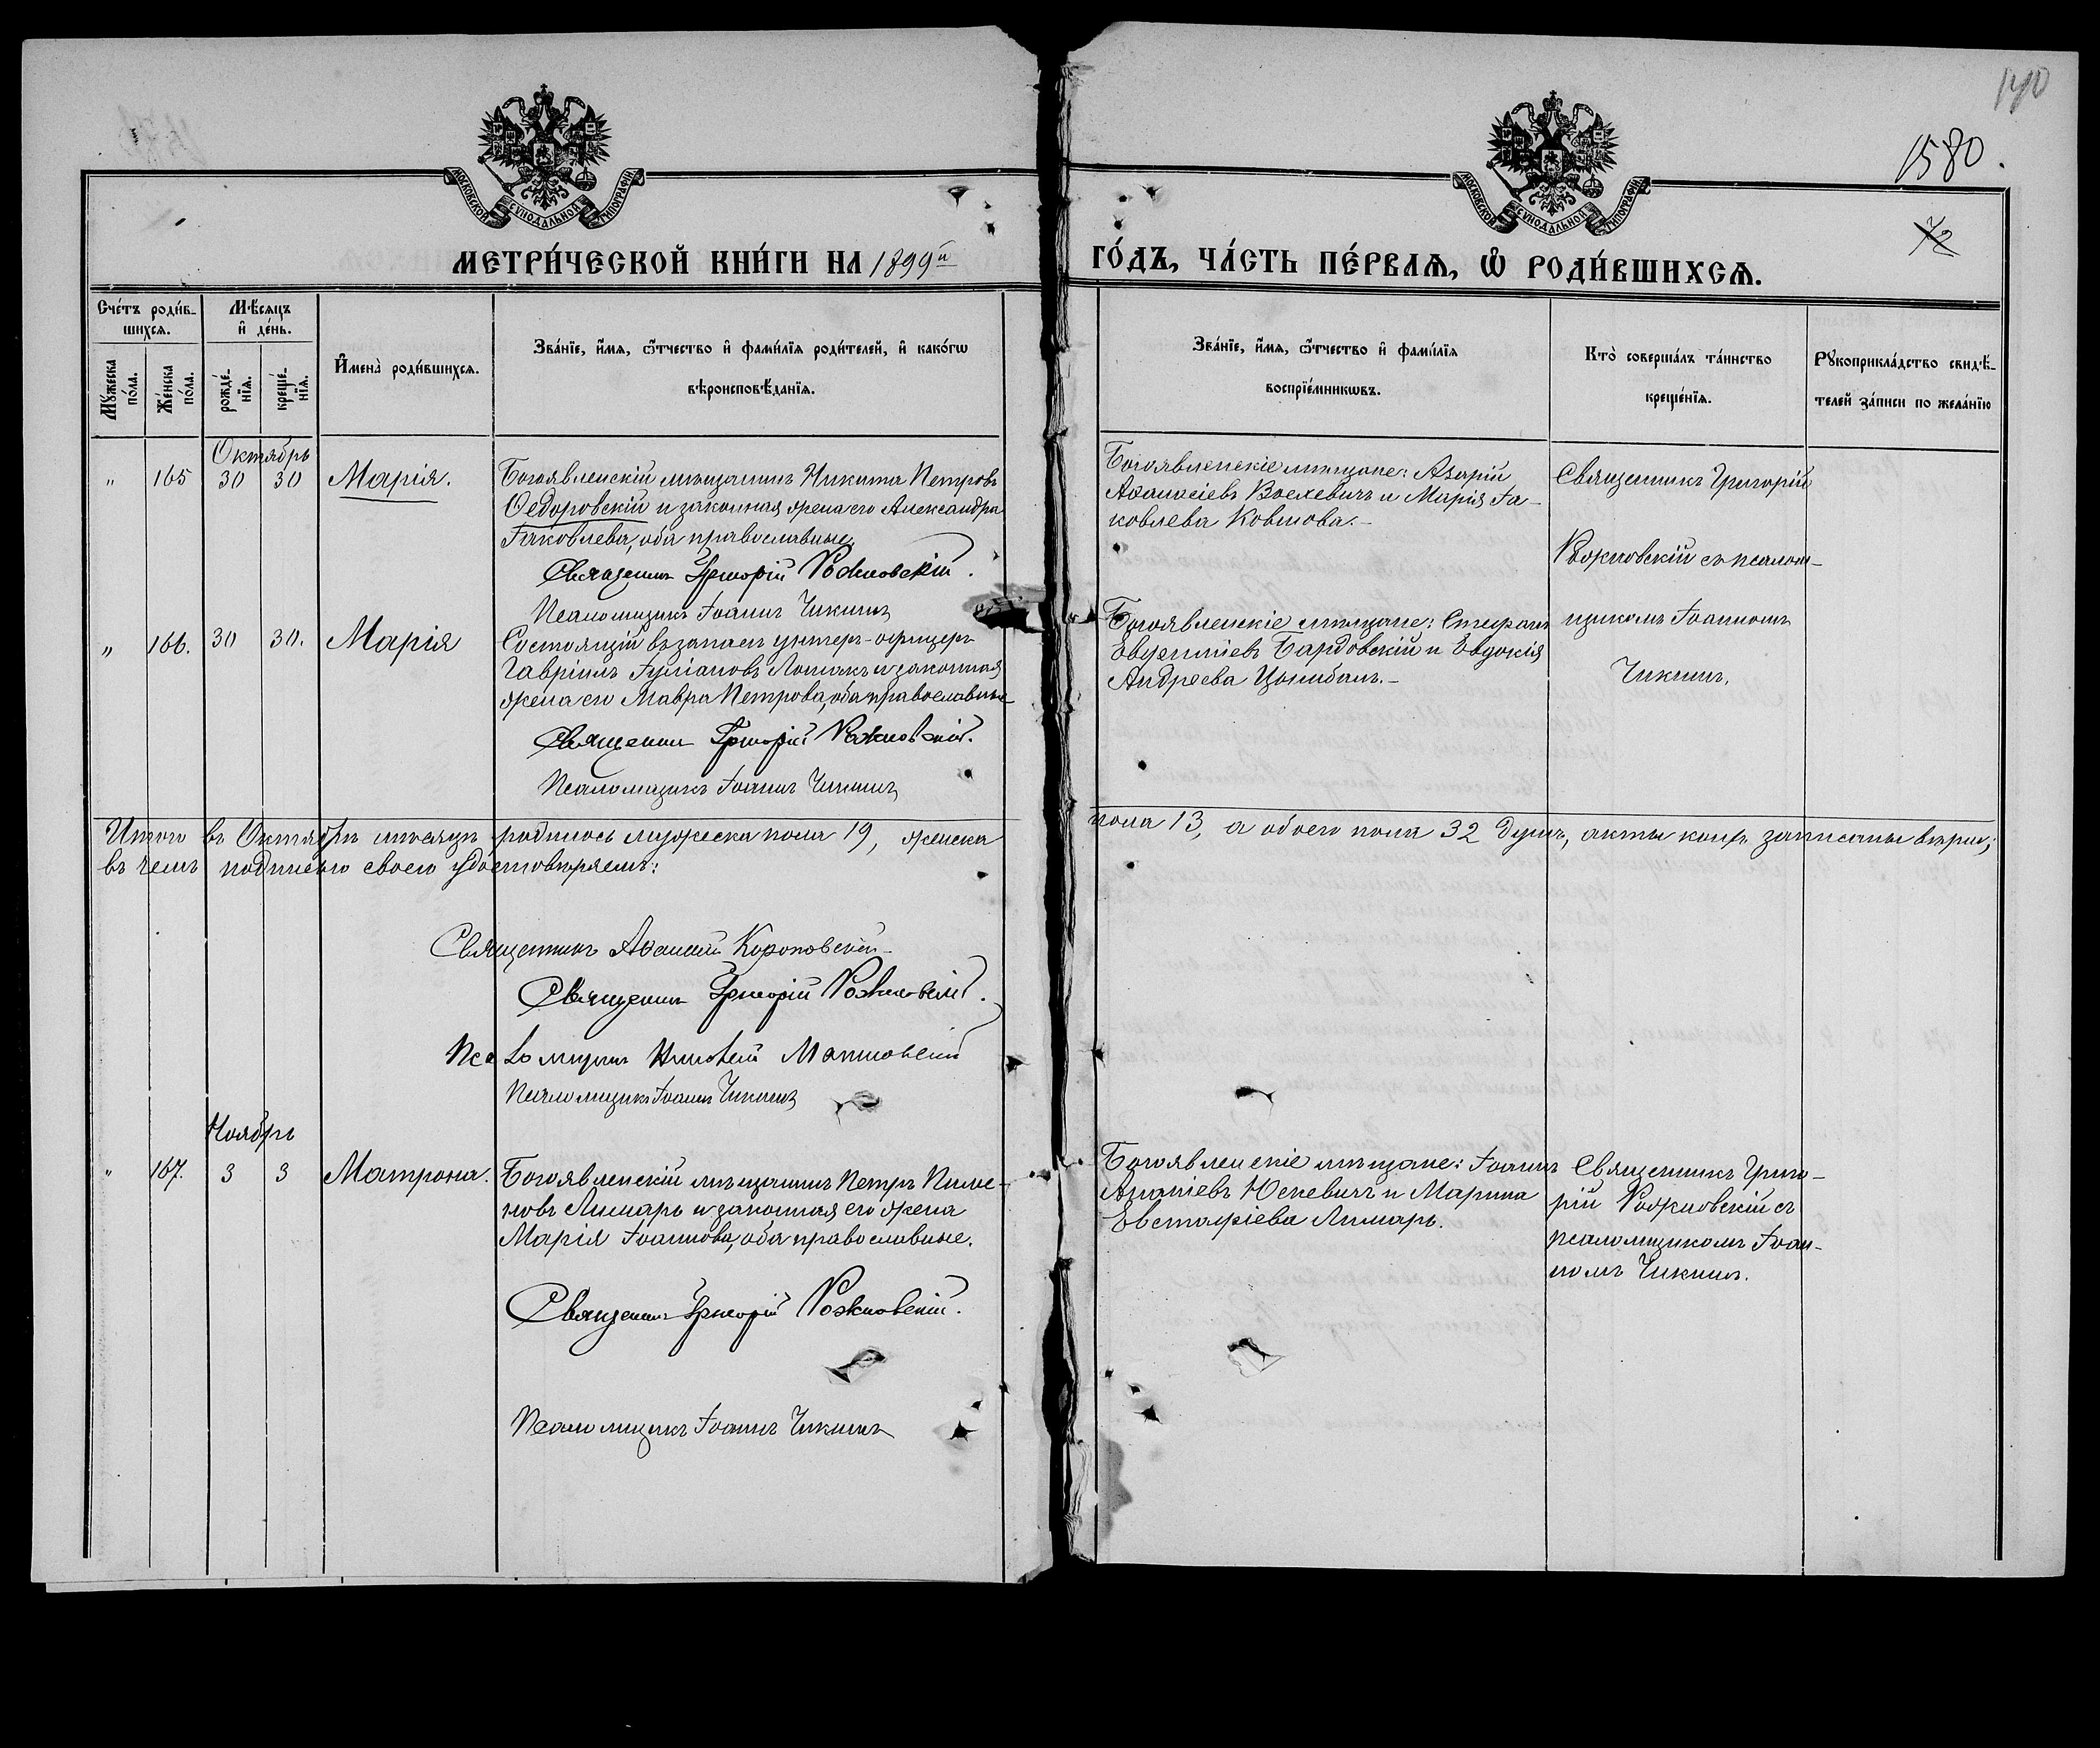 140
1580.
МОСКОВСКОЙ СѴНОДАЛЬНОЙ ТИПОГРАФІИ
МОСКОВСКОЙ СѴНОДАЛЬНОЙ ТИПОГРАФІИ
МЕТРИ́ЧЕСКОЙ КНИ́ГИ НА 1899й ГО́ДЪ, ЧА́СТЬ ПЕ́РВАѦ, Ѽ РОДИ́ВШИХСѦ.
Сче́тъ роди́в-
шихсѧ.
Мѣ́сѧцъ
и҆ де́нь.
Мꙋ́жеска
по́ла.
Же́нска
по́ла.
рожде́-
нїѧ.
креще́-
нїѧ.
И҆мена̀ роди́вшихсѧ.
Зва́нїе, и҆́мѧ, ѻ҆́тчество и҆ фами́лїѧ роди́телей, и҆ како́гѡ
вѣроисповѣ́данїѧ.
Зва́нїе, и҆́мѧ, ѻ҆́тчество и҆ фами́лїѧ
воспрїе́мникѡвъ.
Кто̀ соверша́лъ та́инство
креще́нїѧ.
Рꙋкоприкла́дство свидѣ́-
телей за́писи по жела́нїю
Октябрь
" 165 30 30 Марія.
Богоявленскій мѣщанинъ Никита Петровъ
Ѳедоровскій и законная жена его Александра
Іаковлева, оба православные.
Священникъ Григорій Рожновскій.
Псаломщикъ Іоаннъ Чикинъ
Богоявленскіе мѣщане: Азарій
Аѳанасіевъ Воскевичъ и Марія Іа-
ковлева Ковшова.-
Священникъ Григорій
Рожновскій съ псалом-
щикомъ Іоанномъ
Чикинъ.
" 166. 30 30. Марія
Состоящій въ запасѣ унтеръ-офицеръ
Гавріилъ Іуліановъ Лошакъ и законная
жена его Мавра Петрова, оба православные
Священникъ Григорій Рожновскій.
Псаломщикъ Іоаннъ Чикинъ
Богоявленскіе мѣщане: Стефанъ
Евѳиміевъ Бардовскій и Евдокія
Андреева Цымбалъ.-
Итого въ Октябрѣ мѣсяцѣ родилось мужеска пола 19, женска пола 13, а обоего пола 32 душъ, акты коихъ записаны вѣрно;
въ чемъ подписью своею удостовѣряемъ:
Священникъ Короповскій
Священникъ Григорій Рожновскій.
Псаломщикъ
Псаломщикъ Іоаннъ Чикинъ
Ноябрь
" 167. 3 3 Матрона.
Богоявленскій мѣщанинъ Петръ Пиме-
новъ Лимарь и законная его жена
Марія Іоаннова, оба православные.
Священникъ Григорій Рожновскій.
Псаломщикъ Іоаннъ Чикинъ
Богоявленскіе мѣщане: Іоаннъ
Ананіевъ Юскевичъ и Марина
Евстафіева Лимарь.
Священникъ Григо-
рій Рожновскій съ
псаломщикомъ Іоан-
номъ Чикинъ.